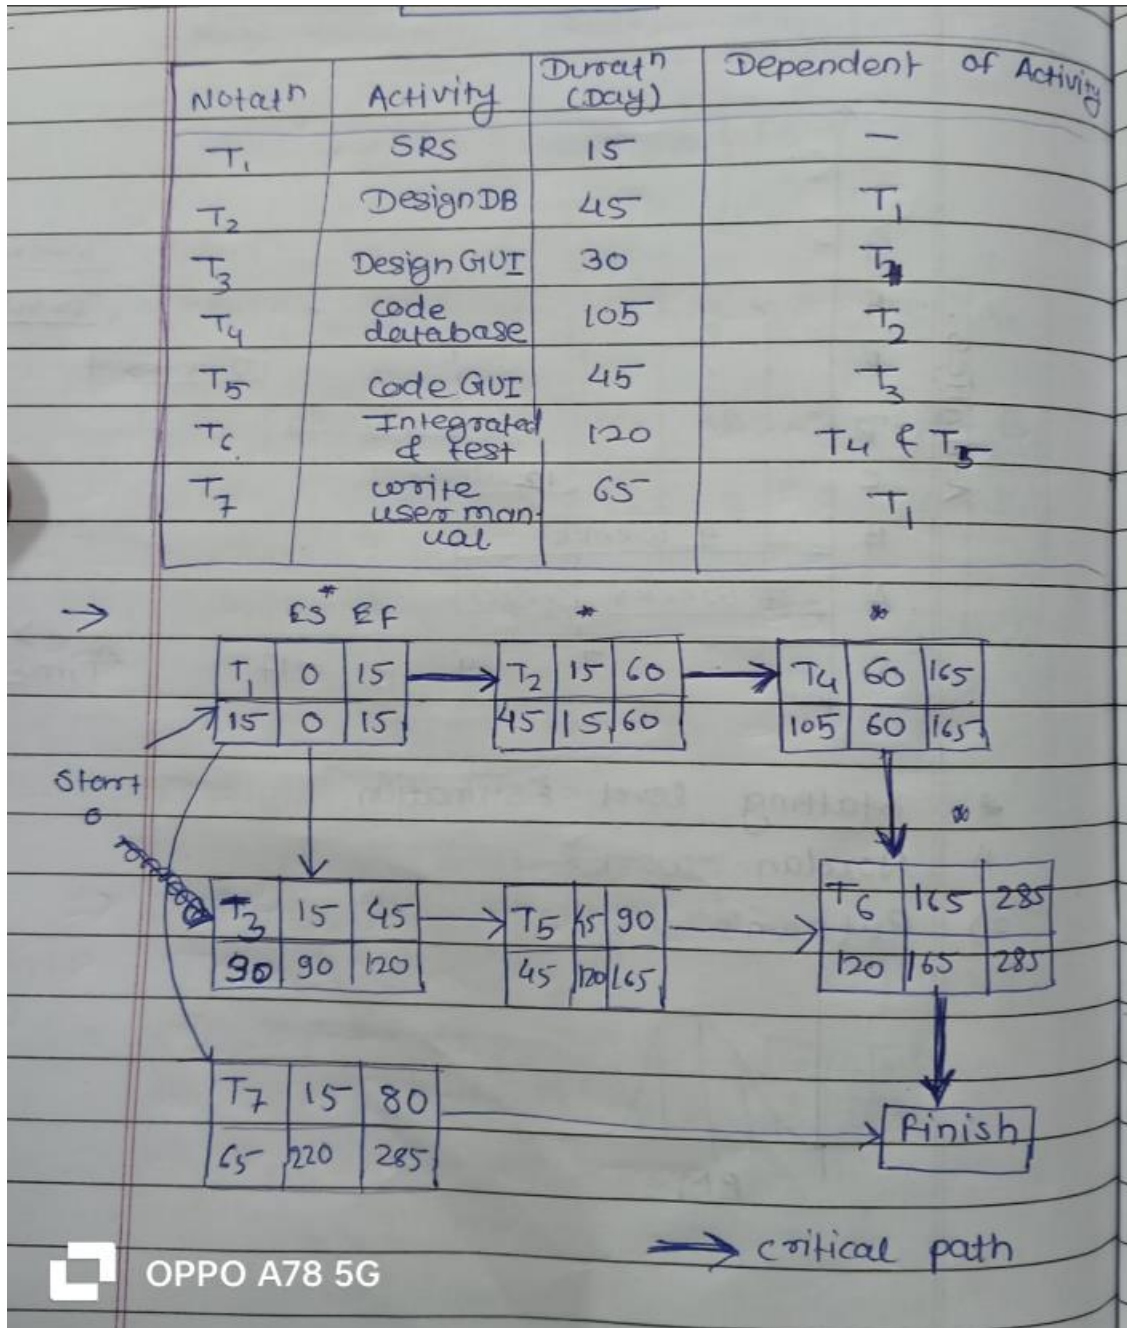 Notatn Activity Duratn (Day) Dependent of Activity
T1 SRS 15 —
T2 Design DB 45 T1
T3 Design GUI 30
T4 code database 105 T2
T5 code GUI 45 T3
T6 Integrated & test 120 T4 & T5
T7 write user man-ual. 65 T1
→ ES* EF * *
T1 0 15 T2 15 60 T4 60 165
15 0 15 45 15 60 105 60 165
Start
0
*
T3 15 45 T5 45 90 T6 165 285
90 90 120 45 120 165 120 165 285
T7 15 80
Finish
65 220 285
⇒ critical path
OPPO A78 5G